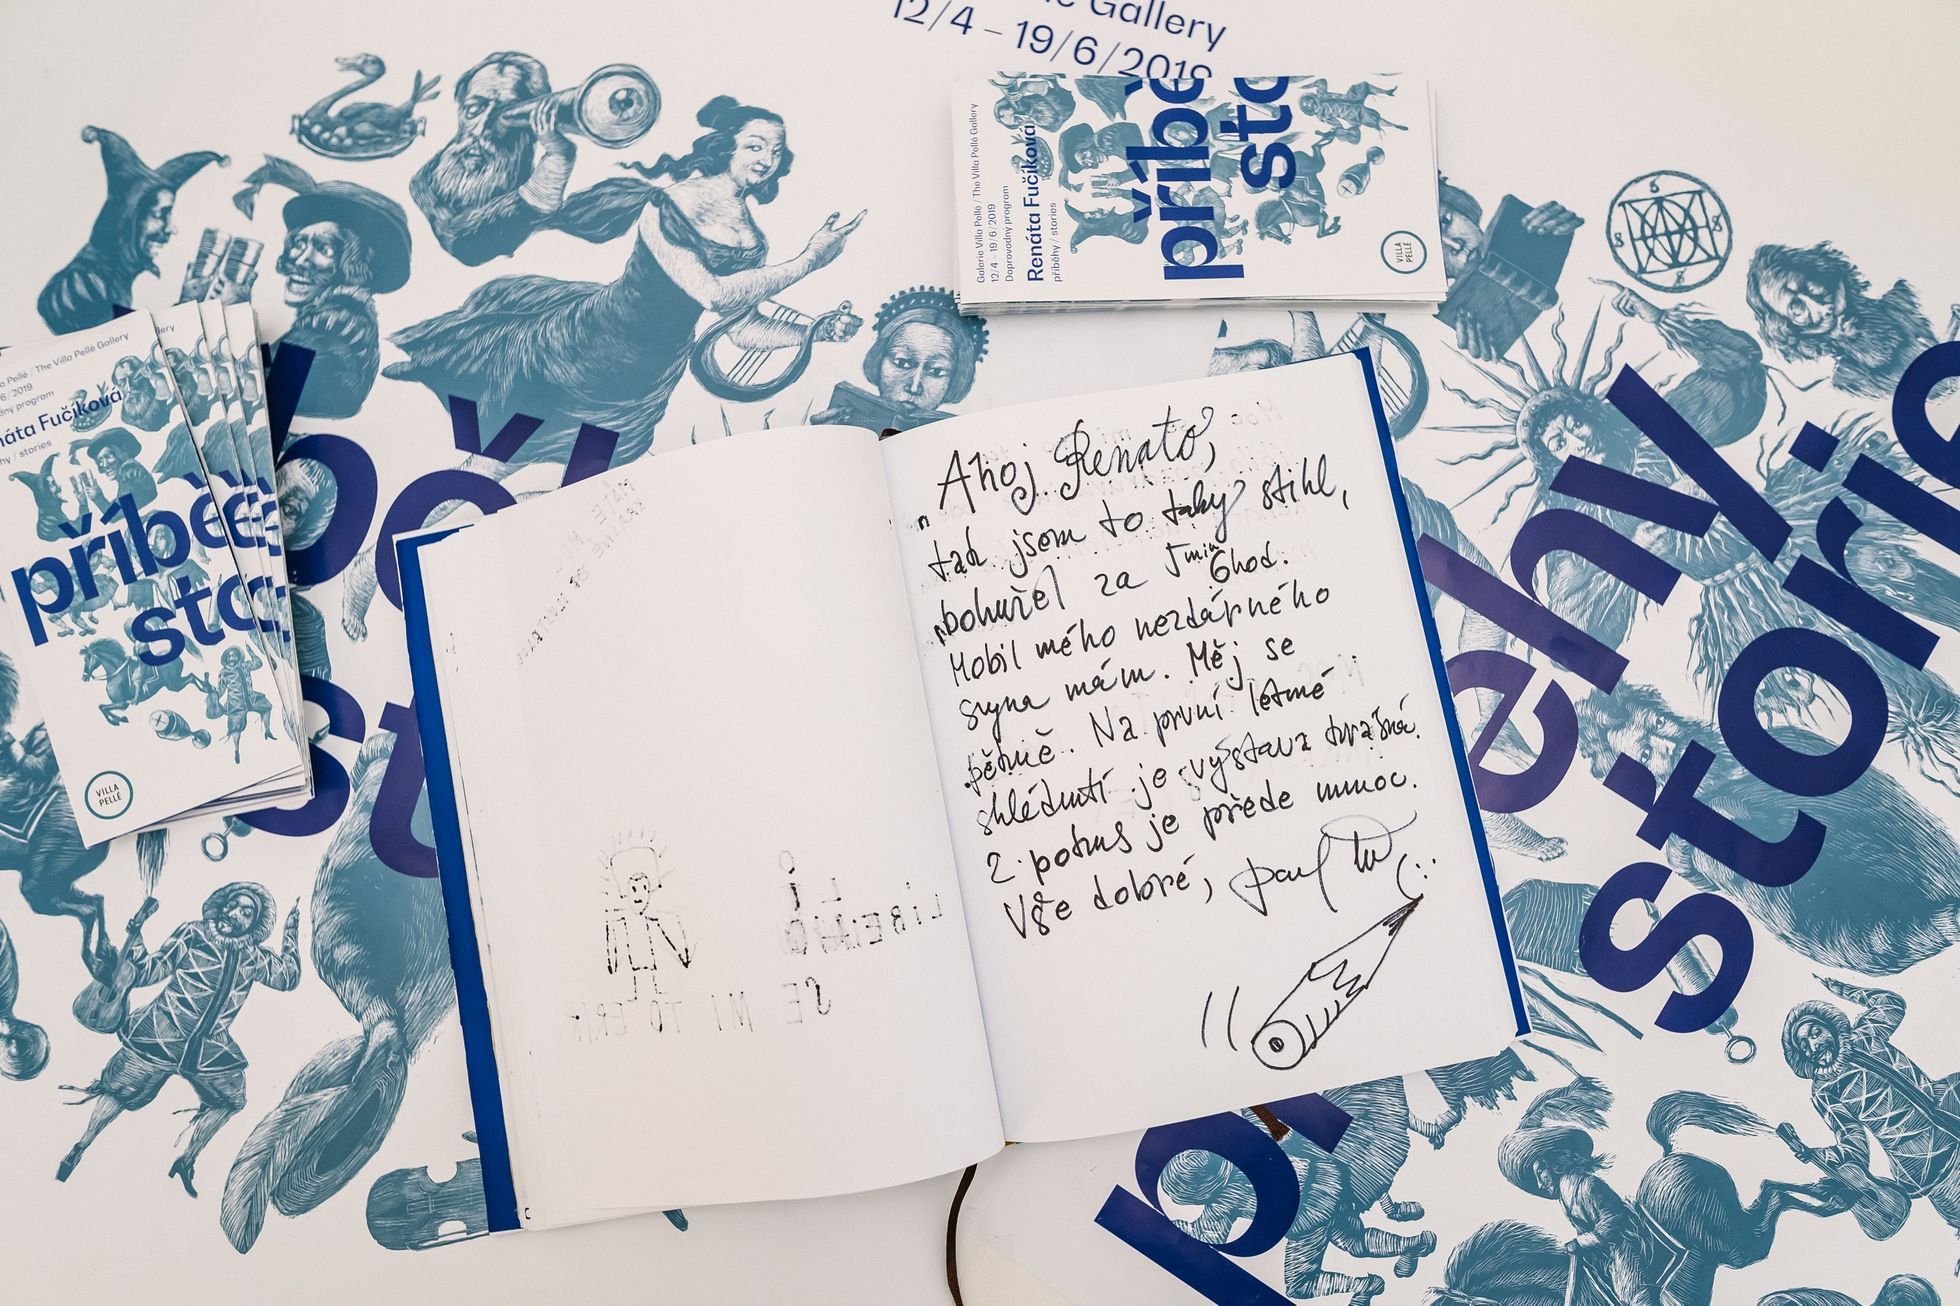 Gallery
12/4 – 19/6/2019
Galerie Villa Pellé / The Villa Pellé Gallery
12/4 – 19/6/2019
Doprovodný program
Renáta Fučíková
příběhy / stories
příbě
sto
VILLA
PELLÉ
a Pellé / The Villa Pellé Gallery
6/2019
dný program
náta Fučíková
hy / stories
příbě
sto
VILLA
PELLÉ
Ahoj Renato,
tak jsem to taky stihl,
bohužel za 5 min 6 hod.
Mobil mého nezdárného
syna mám. Měj se
pěkně. Na první letmé
shlédnutí je výstava krásná.
2. pokus je přede mnou.
Vše dobré,
LÍ
LÍBENO
SE MI TO
ehy
storie